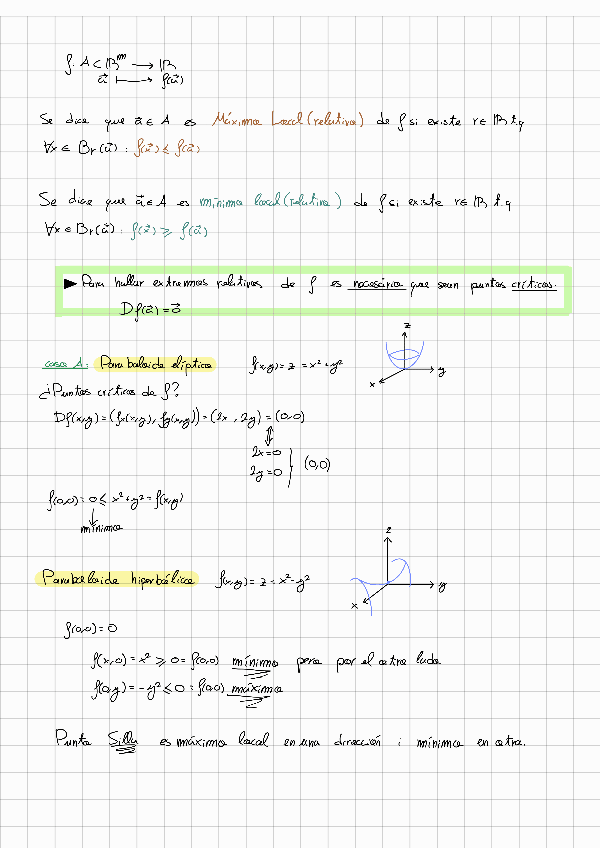 f: A ⊂ ℝᵐ → ℝ
a⃗ ↦ f(a⃗)
Se dice que a⃗ ∈ A es Máximo Local (relativo) de f si existe r ∈ ℝ t.q
∀x ∈ Br(a⃗) : f(x⃗) ≤ f(a⃗)
Se dice que a⃗ ∈ A es mínimo local (relativo) de f si existe r ∈ ℝ t.q
∀x ∈ Br(a⃗) : f(x⃗) ≥ f(a⃗)
► Para hallar extremos relativos de f es necesario que sean puntos críticos.
Df(a⃗) = 0⃗
caso A: Paraboloide elíptico f(x,y) = z = x² + y²
z
y
x
¿Puntos críticos de f?
Df(x,y) = (fx(x,y), fy(x,y)) = (2x, 2y) = (0,0)
⇕
2x = 0
2y = 0 } (0,0)
f(0,0) = 0 ≤ x² + y² = f(x,y)
↓
mínimo
z
Paraboloide hiperbólico f(x,y) = z = x² - y²
y
x
f(0,0) = 0
f(x,0) = x² ≥ 0 = f(0,0) mínimo pero por el otro lado
f(0,y) = -y² ≤ 0 = f(0,0) máximo
Punto Silla es máximo local en una dirección i mínimo en otra.